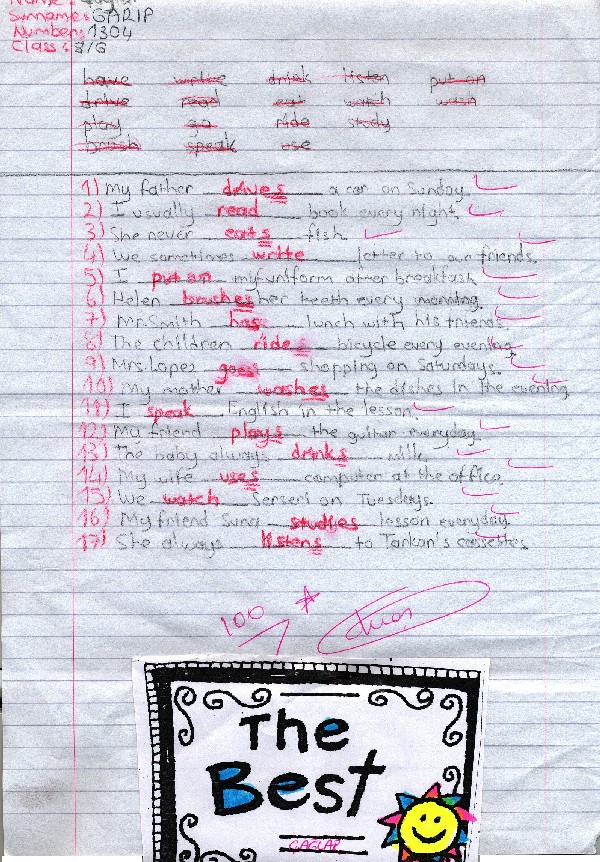 Surname: GARIP
Number: 1304
Class: 8/G
have write drink listen put on
drive read eat watch wash
play go ride study
brush speak use
1) My father drives a car on Sunday.
2) I usually read book every night.
3) She never eats fish.
4) We sometimes write letter to our friends.
5) I put on my uniform after breakfast.
6) Helen brushes her teeth every morning.
7) Mr. Smith has lunch with his friends.
8) The children ride bicycle every evening.
9) Mrs. Lopez goes shopping on Saturdays.
10) My mother washes the dishes in the evening.
11) I speak English in the lesson.
12) My friend plays the guitar everyday.
13) The baby always drinks milk.
14) My wife uses computer at the office.
15) We watch Serseri on Tuesdays.
16) My friend Suna studies lesson everyday.
17) She always listens to Tarkan's cassettes.
100
The
Best
CAGLAR